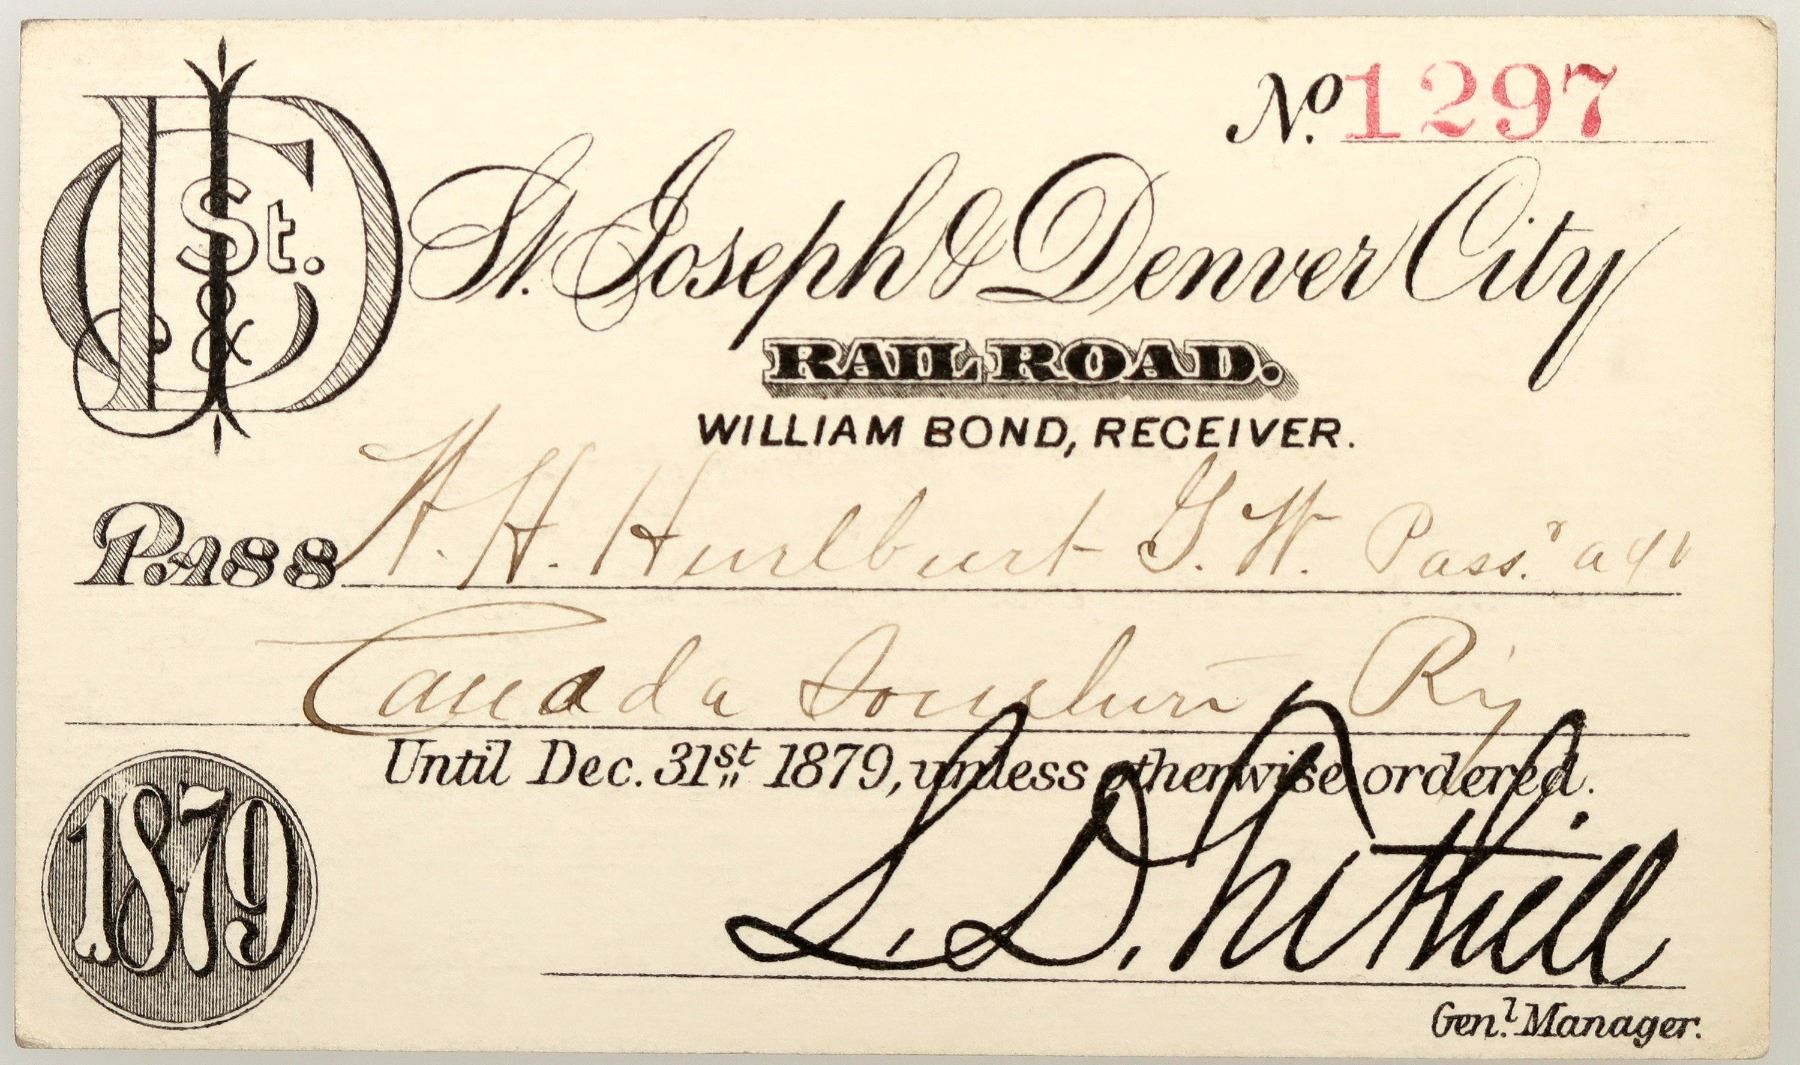 No. 1297
St. J & D C
St. Joseph & Denver City
RAIL ROAD.
WILLIAM BOND, RECEIVER.
Pass W. H. Hurlburt G. W. Pass.r agt
Canada Southern Ry
Until Dec. 31st 1879, unless otherwise ordered.
1879
L. D. Tuthill
Gen.l Manager.